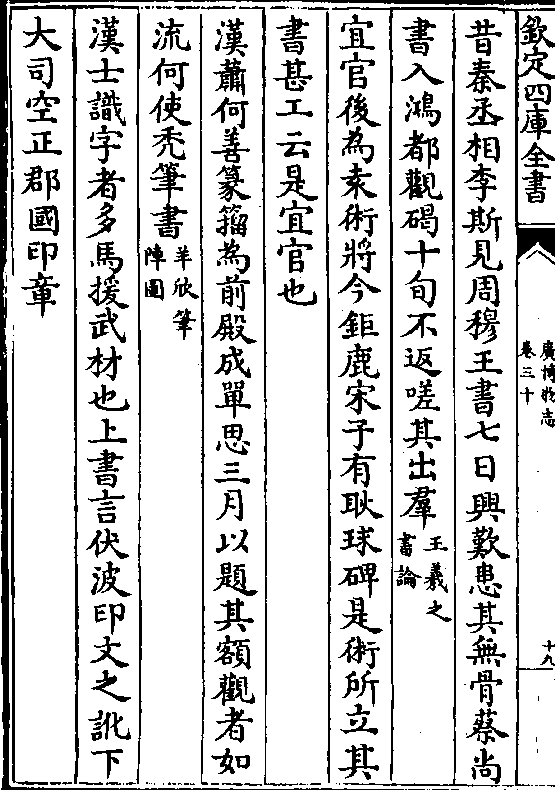 欽定四庫全書
廣博物志
卷三十
十九
昔秦丞相李斯見周穆王書七日興歎患其無骨蔡尚
書入鴻都觀碣十旬不返嗟其出羣王羲之書論
宜官後為袁術將今鉅鹿宋子有耿球碑是術所立其
書甚工云是宜官也
漢蕭何善篆籀為前殿成單思三月以題其額觀者如
流何使禿筆書羊欣筆陣圖
漢士識字者多馬援武材也上書言伏波印文之訛下
大司空正郡國印章